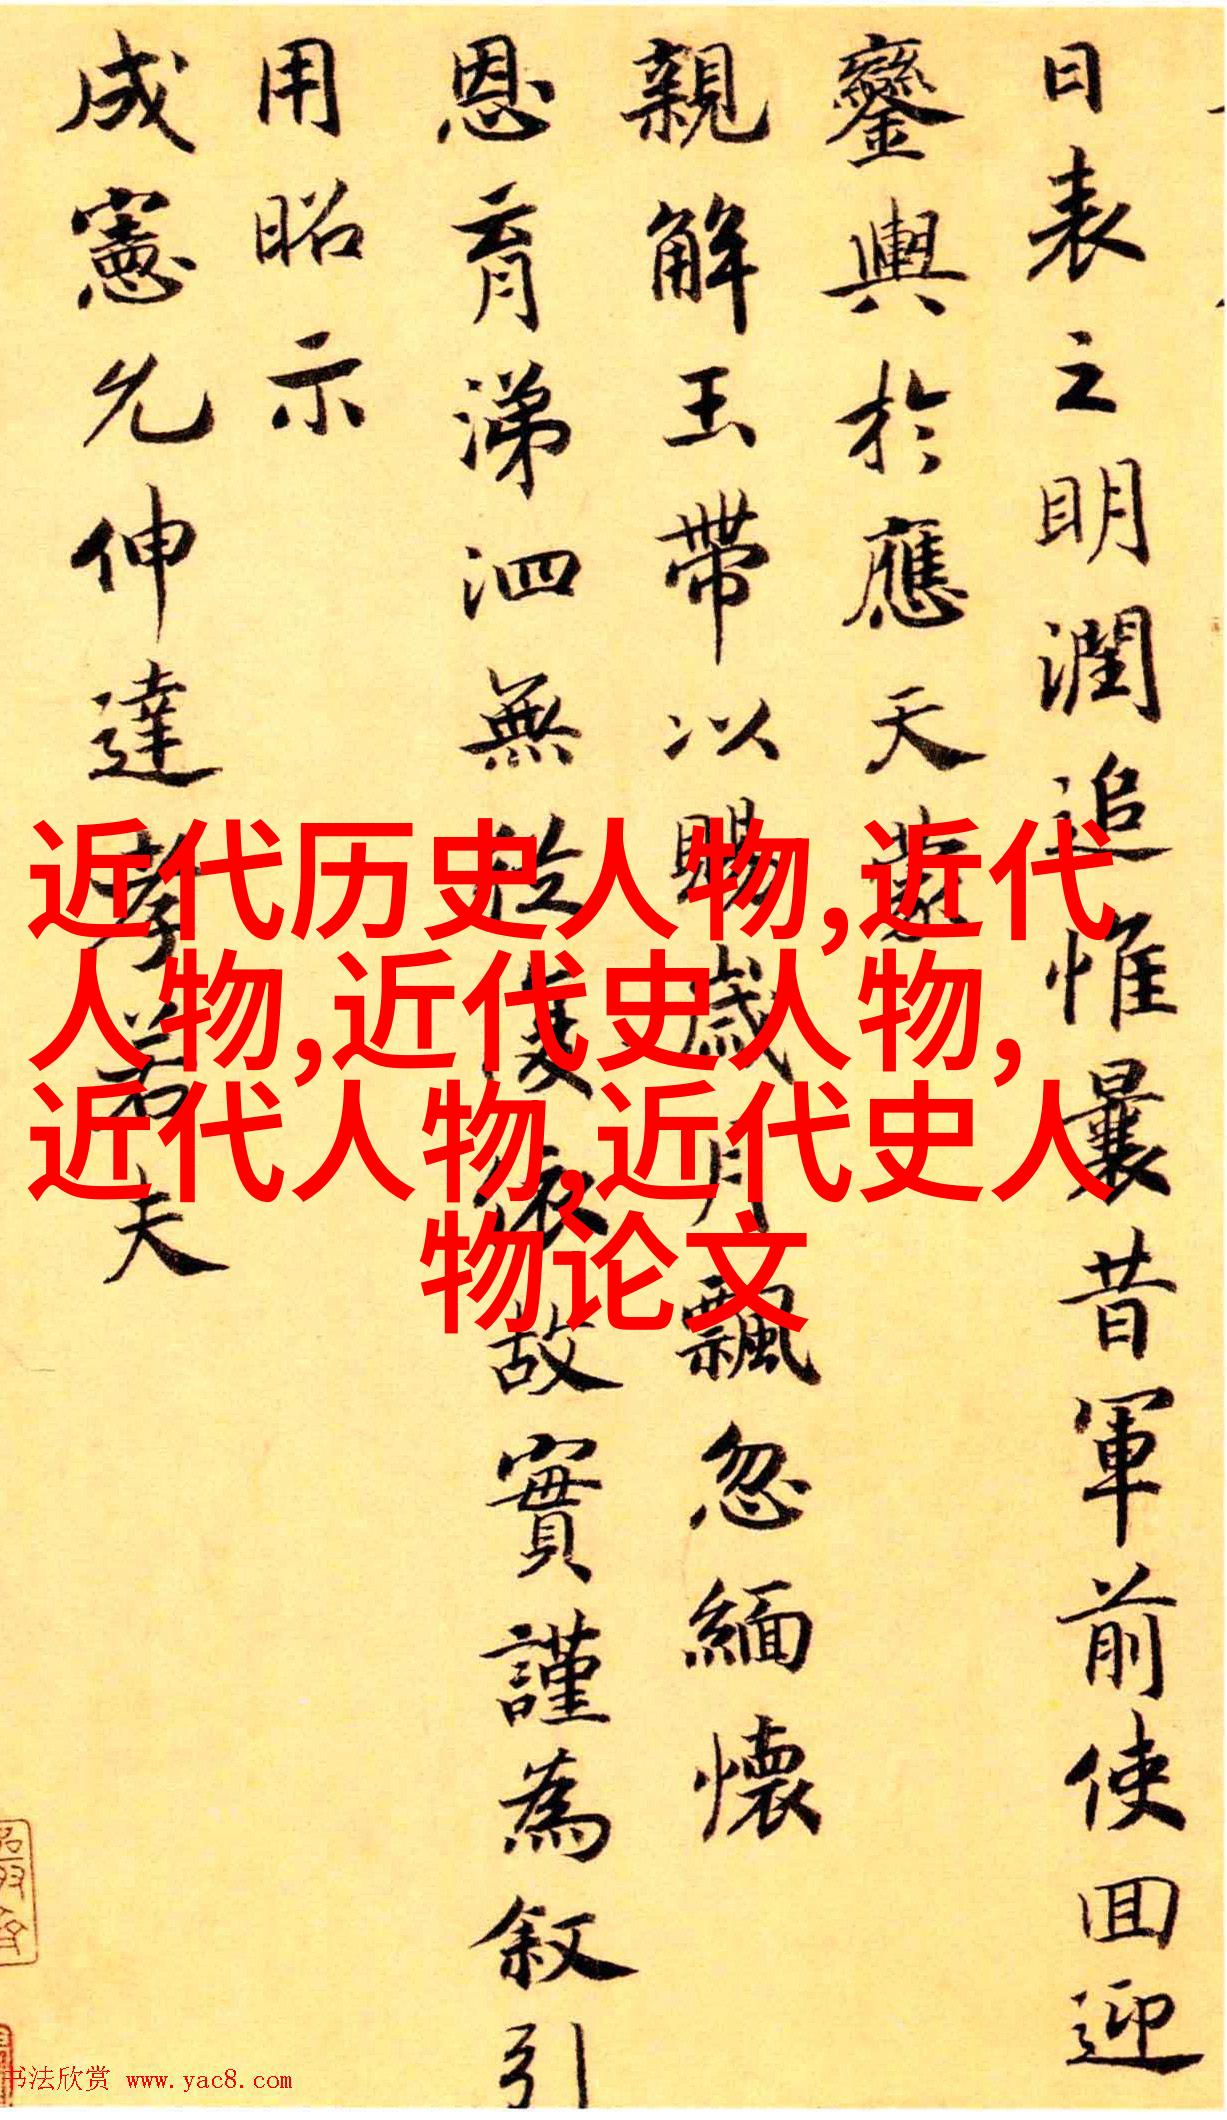 日表之明潤追惟曩昔軍前使回迎
鑾輿於應天蒙
親解玉帶以賜歲月飄忽緬懷
恩育涕泗無從爰依故實謹為叙引
用昭示
成憲允伸達孝若夫
近代历史人物,近代
人物,近代史人物,
近代人物,近代史人
物论文
书法欣赏 www.yac8.com